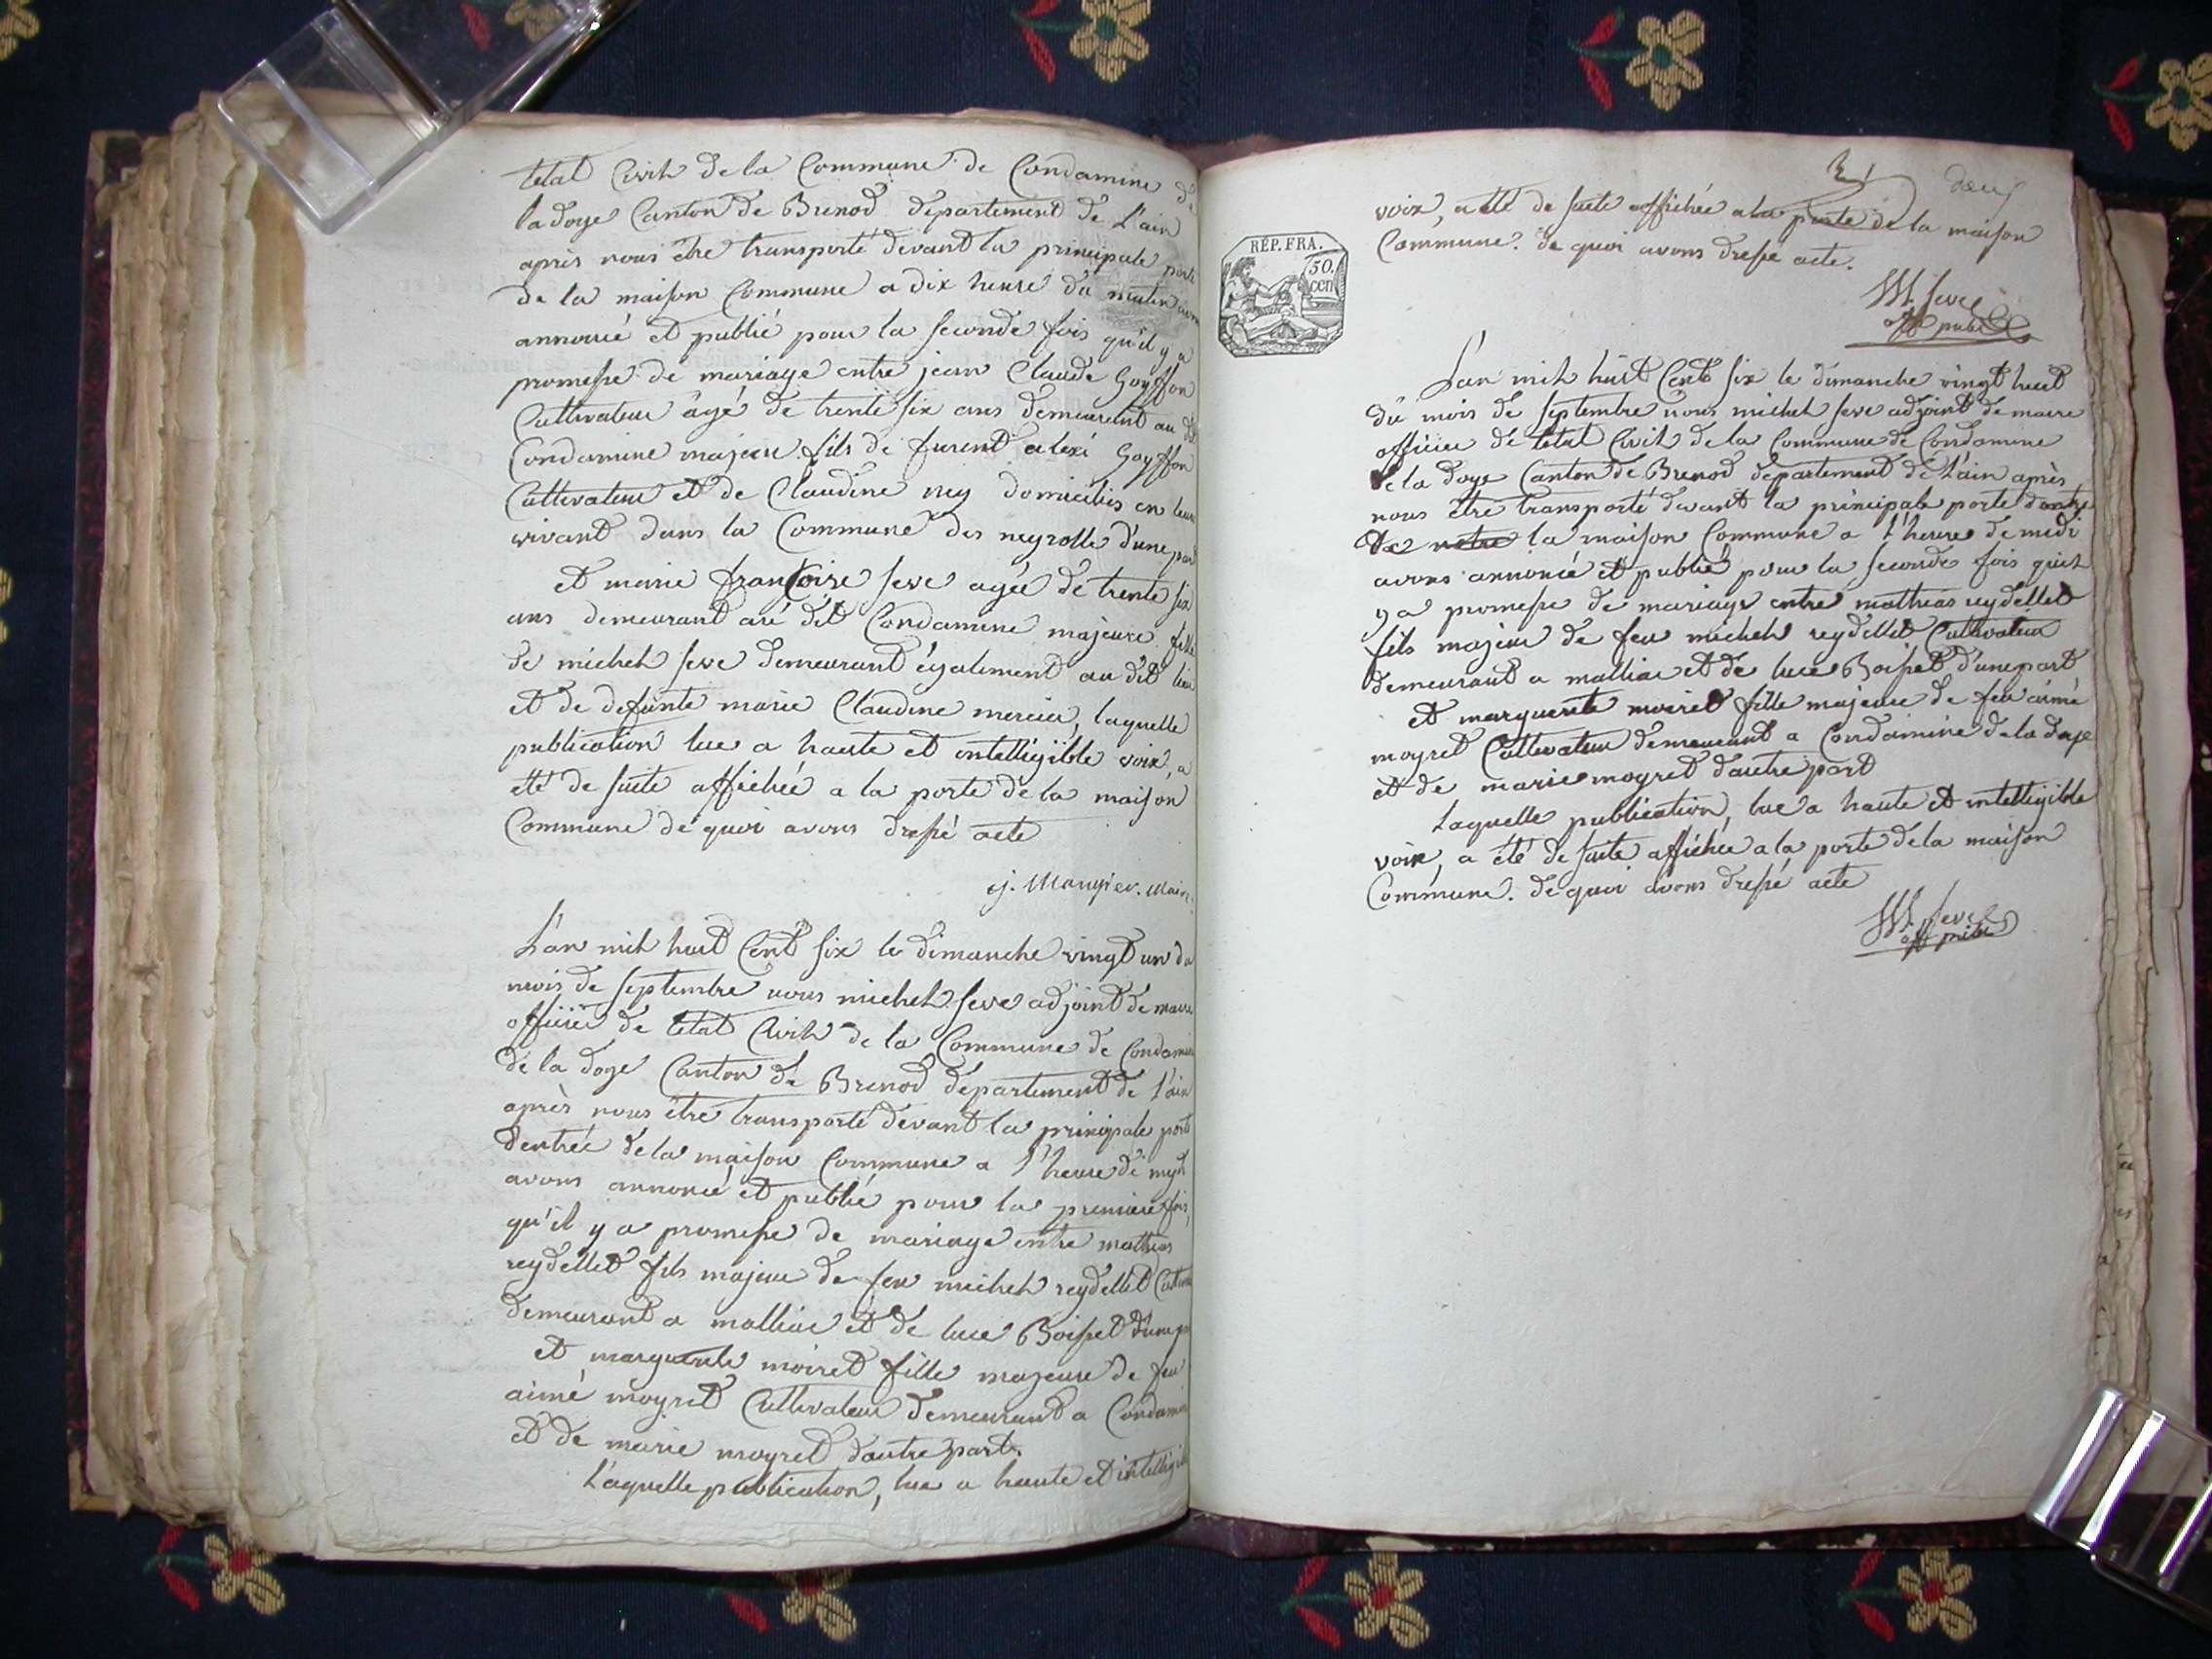 létat Civil de la Commune de Condamine de
la doye Canton de Brenod departement de L'ain
après nous être transporté devant la principale porte
de la maison Commune a dix heure du matin avons
annoncé et publié pour la seconde fois qu'il y a
promesse de mariage entre jean Claude Goyffon
Cultivateur âgé de trente six ans demeurant au dit
Condamine majeur fils de furent alexi Goyffon
Cultivateur et de Claudine ney domiciliés en leur
vivant dans la Commune des neyrolle d'une part
et marie françoise seve agée de trente six
ans demeurant au dit Condamine majeure fille
de michel seve demeurant également au dit lieu
et de defunte marie Claudine mercier, laquelle
publication lue a haute et intelligible voix, a
été de suite affichée a la porte de la maison
Commune de quoi avons dressé acte
j. Mangier. Maire
L'an mil huit Cent six le dimanche vingt un du
mois de septembre nous michel seve adjoint de maire
officier de létat Civil de la Commune de Condamine
de la doye Canton de Brenod département de l'ain
après nous être transporté devant la principale porte
dentrée de la maison Commune a l'heure de mydi
avons annoncé et publié pour la premiere fois,
qu'il y a promesse de mariage entre mathias
reydellet fils majeur de feu michel reydellet Cultiva
demeurant a malliac et de luce Boisset d'une p
et marguerite moiret fille majeure de feu
aimé moyret Cultivateur demeurant a Condamin
et de marie moyret dautre part.
Laquelle publication, lue a haute et intelligible
deux
voix, a été de suite affichée a la porte de la maison
Commune. de quoi avons dressé acte.
REP. FRA.
50.
cen
M seve
off public
L'an mil huit Cent six le dimanche vingt huit
du mois de septembre nous michel seve adjoint de maire
officier de létat Civil de la Commune de Condamine
de la doye Canton de Brenod departement de L'ain après
nous être transporté devant la principale porte
de notre la maison Commune a l'heure de midi
avons annoncé et publié pour la seconde fois quil
y a promesse de mariage entre mathias reydellet
fils majeur de feu michel reydellet Cultivateur
demeurant a malliac et de luce Boisset d'une part
et marguerite moiret fille majeure de feu aimé
moyret Cultivateur demeurant a Condamine de la doye
et de marie moyret dautre part
Laquelle publication, lue a haute et intelligible
voix, a été de suite affichée a la porte de la maison
Commune. de quoi avons dressé acte
M seve
off public